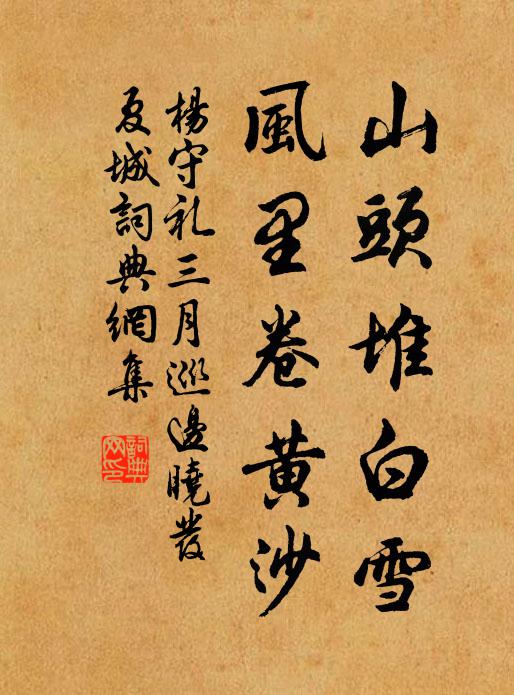 山頭堆白雪
風里卷黄沙
楊守礼三月巡邊曉發
夏城詞典網集
詞典
网印